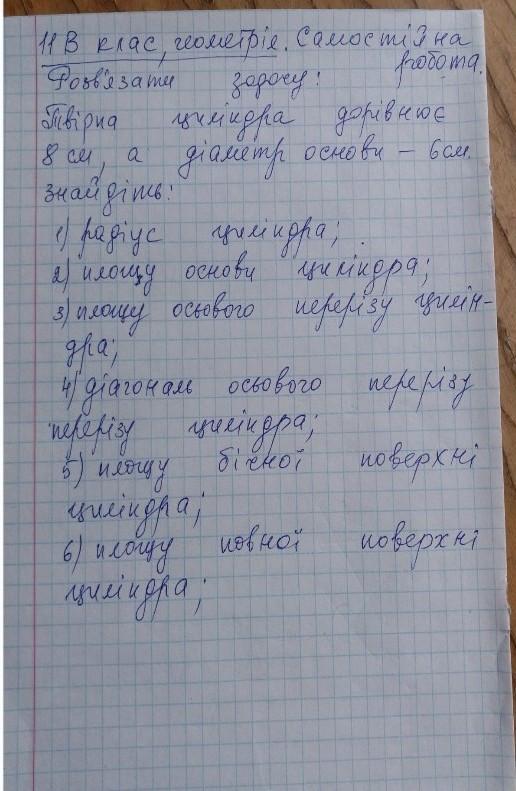 11 В клас, геометрія. Самостійна
робота.
Розв'язати задачу:
Твірна циліндра дорівнює
8 см, а діаметр основи – 6см.
Знайдіть:
1) радіус циліндра;
2) площу основи циліндра;
3) площу осьового перерізу цилін-
дра;
4) діагональ осьового перерізу
перерізу циліндра;
5) площу бічної поверхні
циліндра;
6) площу повної поверхні
циліндра;